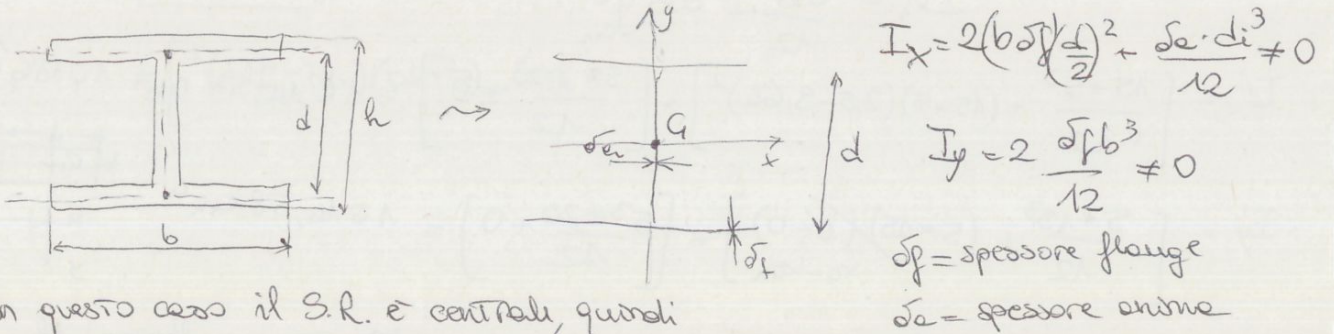 y
d
h
b
G
x
δa
d
δf
Ix = 2(b δf)(d/2)² + δa · di³/12 ≠ 0
Iy = 2 δf b³/12 ≠ 0
δf = spessore flange
δa = spessore anima
n questo caso il S.R. è centrale, quindi